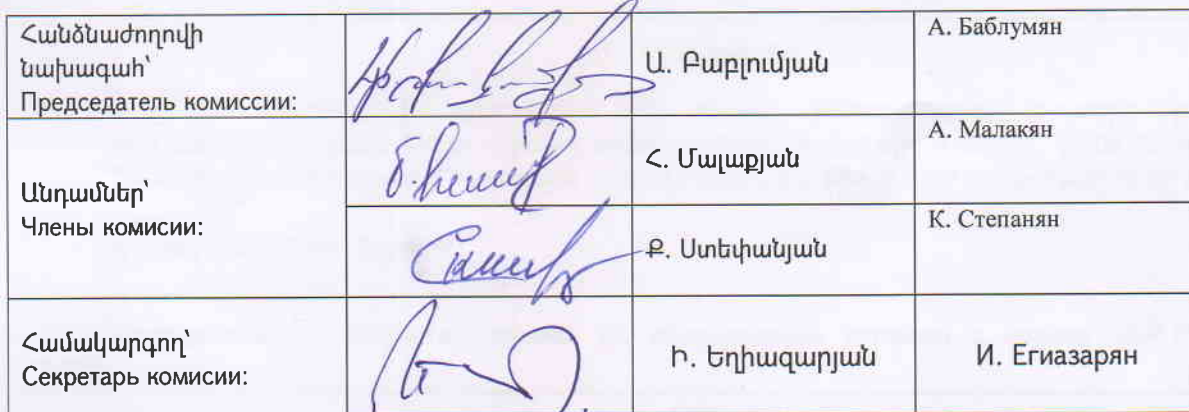 Հանձնաժողովի
նախագահ՝
Председатель комиссии:
Ա. Բաբլումյան
А. Баблумян
Անդամներ՝
Члены комисии:
Հ. Մալաքյան
А. Малакян
Ք. Ստեփանյան
К. Степанян
Համակարգող՝
Секретарь комисии:
Ի. Եղիազարյան
И. Егиазарян